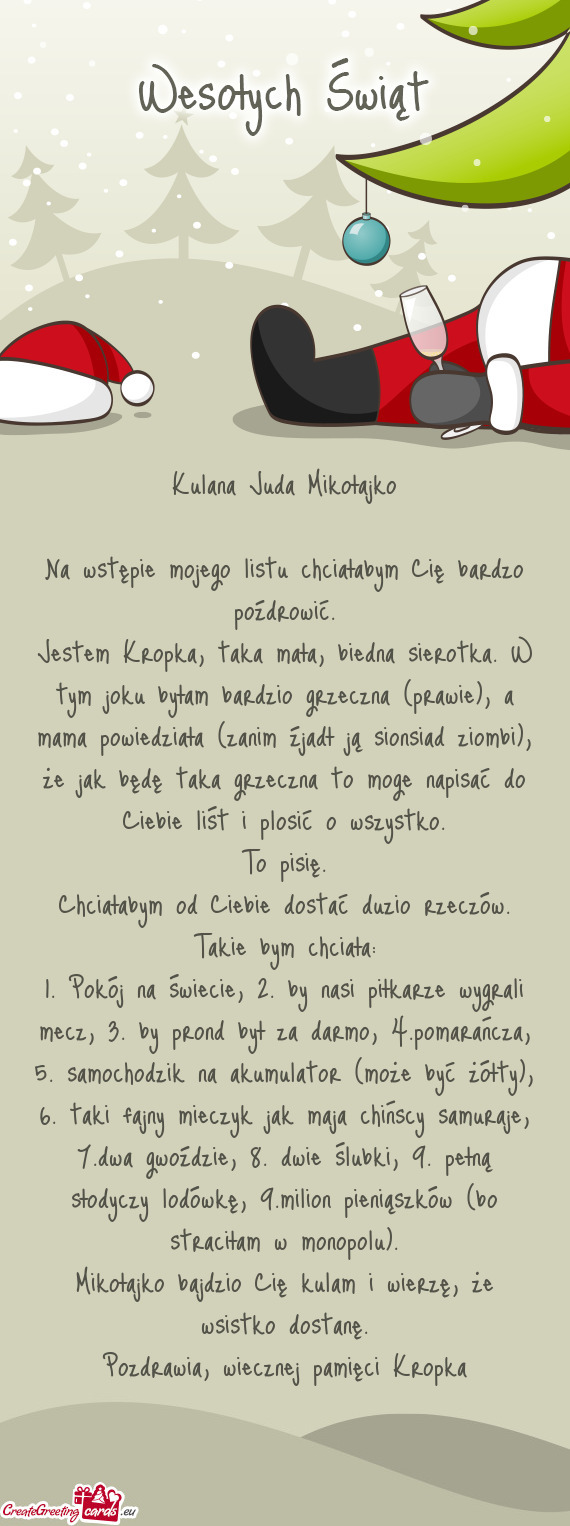 Wesołych Świąt
Kulana Juda Mikołajko
Na wstępie mojego listu chciałabym Cię bardzo
poździrowić.
Jestem Kropka, taka mała, biedna sierotka. W
tym joku byłam bardzio grzeczna (prawie), a
mama powiedziała (zanim źjadł ją sionsiad ziombi),
że jak będę taka grzeczna to moge napisać do
Ciebie liśt i plosić o wszystko.
To pisię.
Chciałabym od Ciebie dostać duzio rzeczów.
Takie bym chciała:
1. Pokój na świecie, 2. by nasi piłkarze wygrali
mecz, 3. by prond był za darmo, 4.pomarańcza,
5. samochodzik na akumulator (może być żółty),
6. taki fajny mieczyk jak maja chińscy samuraje,
7.dwa gwoździe, 8. dwie ślubki, 9. pełną
słodyczy lodówkę, 9.milion pieniąszków (bo
straciłam w monopolu).
Mikołajko bajdzio Cię kulam i wierzę, że
wsistko dostanę.
Pozdrawia, wiecznej pamięci Kropka
CreateGreetingcards.eu